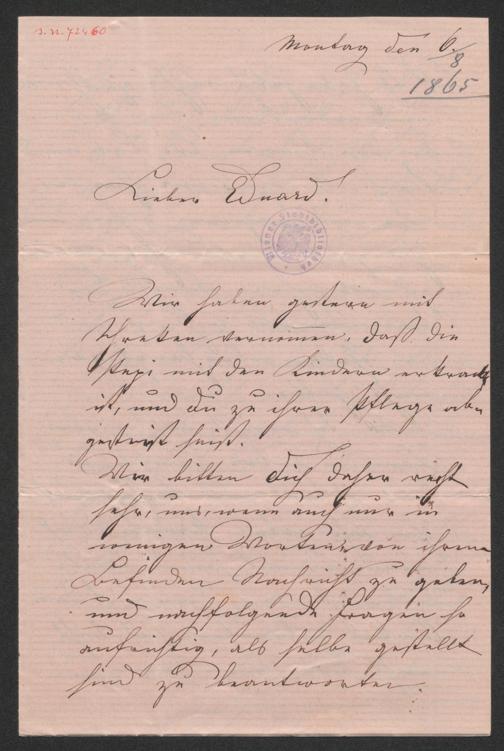 Montag den 6/8
1865
Lieber Eduard!
Wir haben gestern mit
Schreken vernommen, daß die
Pepi mit den Kindern erkrankt
ist, und du zu ihrer Pflege abgereist
seist.
Wir bitten Dich daher recht
sehr, uns, wenn auch nur in
wenigen Worten von ihrem
Befinden Nachricht zu geben,
und nachfolgende Fragen so
aufrichtig, als selbe gestellt
sind zu beantworten.